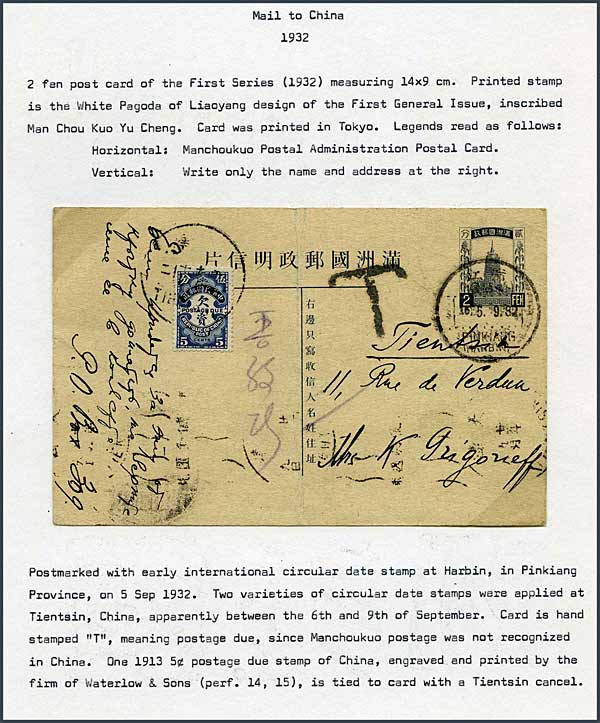 Mail to China
1932
2 fen post card of the First Series (1932) measuring 14x9 cm.  Printed stamp
is the White Pagoda of Liaoyang design of the First General Issue, inscribed
Man Chou Kuo Yu Cheng.  Card was printed in Tokyo.  Legends read as follows:
Horizontal:  Manchoukuo Postal Administration Postal Card.
Vertical:    Write only the name and address at the right.
片信明政郵國洲滿
政郵國洲滿
分
貳
2 FEN
分
伍
欠
資
POSTAGE DUE
REPUBLIC OF CHINA
POST
5
5
T
右邊只寫收信人名姓住址
5.9.32
PINKIANG
(HARBIN)
Tientsin
11, Rue de Verdun
Mrs K Grigorieff
P.O. Box
Postmarked with early international circular date stamp at Harbin, in Pinkiang
Province, on 5 Sep 1932.  Two varieties of circular date stamps were applied at
Tientsin, China, apparently between the 6th and 9th of September.  Card is hand
stamped "T", meaning postage due, since Manchoukuo postage was not recognized
in China.  One 1913 5¢ postage due stamp of China, engraved and printed by the
firm of Waterlow & Sons (perf. 14, 15), is tied to card with a Tientsin cancel.